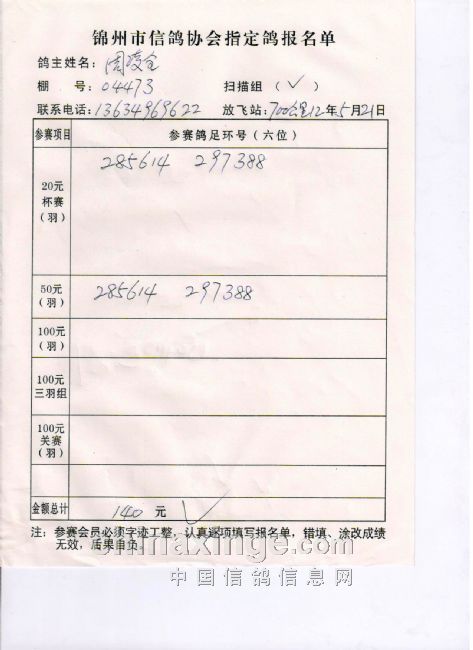 锦州市信鸽协会指定鸽报名单
鸽主姓名：周凌全
棚 号：04473 扫描组（✓）
联系电话：13634969622 放飞站：700公里12年5月21日
参赛项目 参赛鸽足环号（六位）
20元
杯赛
（羽）
285614 297388
50元
（羽）
285614 297388
100元
（羽）
100元
三羽组
100元
关赛
（羽）
金额总计 140 元
注：参赛会员必须字迹工整，认真逐项填写报名单，错填、涂改成绩
无效，后果自负。
chinaxinge.com
中国信鸽信息网